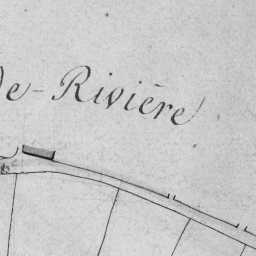 de-Rivière